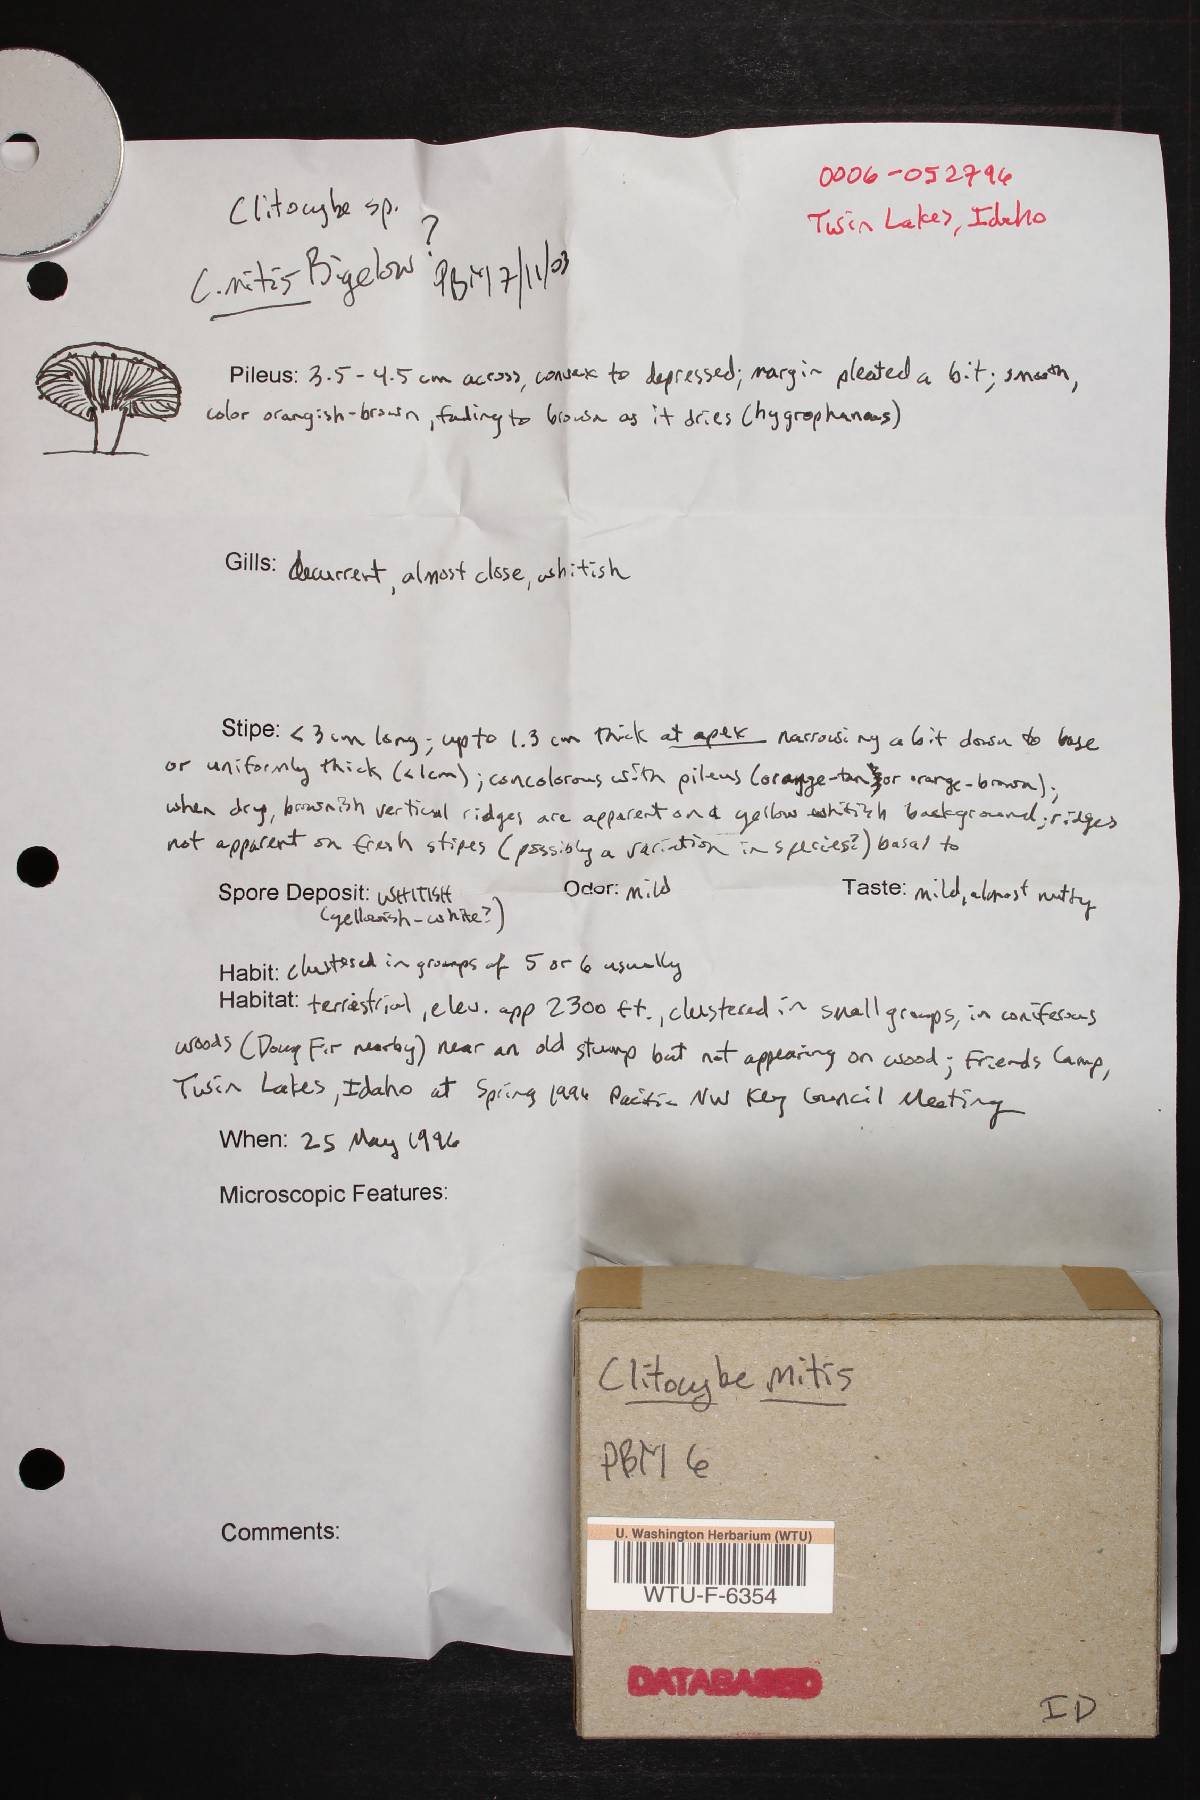 0006-052796
Twin Lakes, Idaho
Clitocybe sp.
C. mitis Bigelow? PBM 7/11/03
Pileus: 3.5 - 4.5 cm across, convex to depressed; margin pleated a bit; smooth,
color orangish-brown, fading to brown as it dries (hygrophanous)
Gills: decurrent, almost close, whitish
Stipe: < 3 cm long; up to 1.3 cm thick at apex narrowing a bit down to base
or uniformly thick (<1cm); concolorous with pileus (orange-tan or orange-brown);
when dry, brownish vertical ridges are apparent on a yellow whitish background; ridges
not apparent on fresh stipes (possibly a variation in species?) basal to
Spore Deposit: WHITISH Odor: mild Taste: mild, almost nutty
(yellowish-white?)
Habit: clustered in groups of 5 or 6 usually
Habitat: terrestrial, elev. app 2300 ft., clustered in small groups, in coniferous
woods (Doug Fir nearby) near an old stump but not appearing on wood; Friends Camp,
Twin Lakes, Idaho at Spring 1996 Pacific NW Key Council Meeting
When: 25 May 1996
Microscopic Features:
Comments:
Clitocybe mitis
PBM 6
U. Washington Herbarium (WTU)
WTU-F-6354
DATABASED
ID